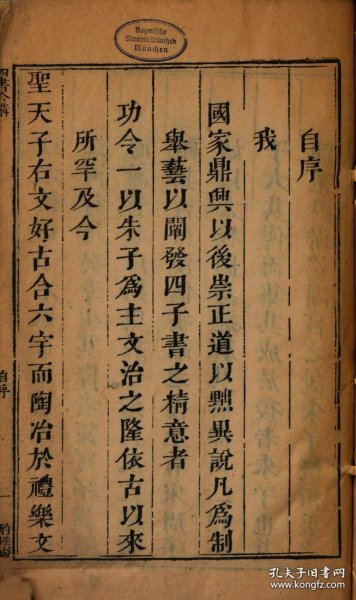 Bayerische
Staatsbibliothek
München
自序
我
國家鼎興以後崇正道以黜異說凡爲制
舉藝以闡發四子書之精意者
功令一以朱子爲主文治之隆依古以來
所罕及今
聖天子右文好古合六字而陶冶於禮樂文
四書合講
自序
一
酌雅齋
孔夫子旧书网